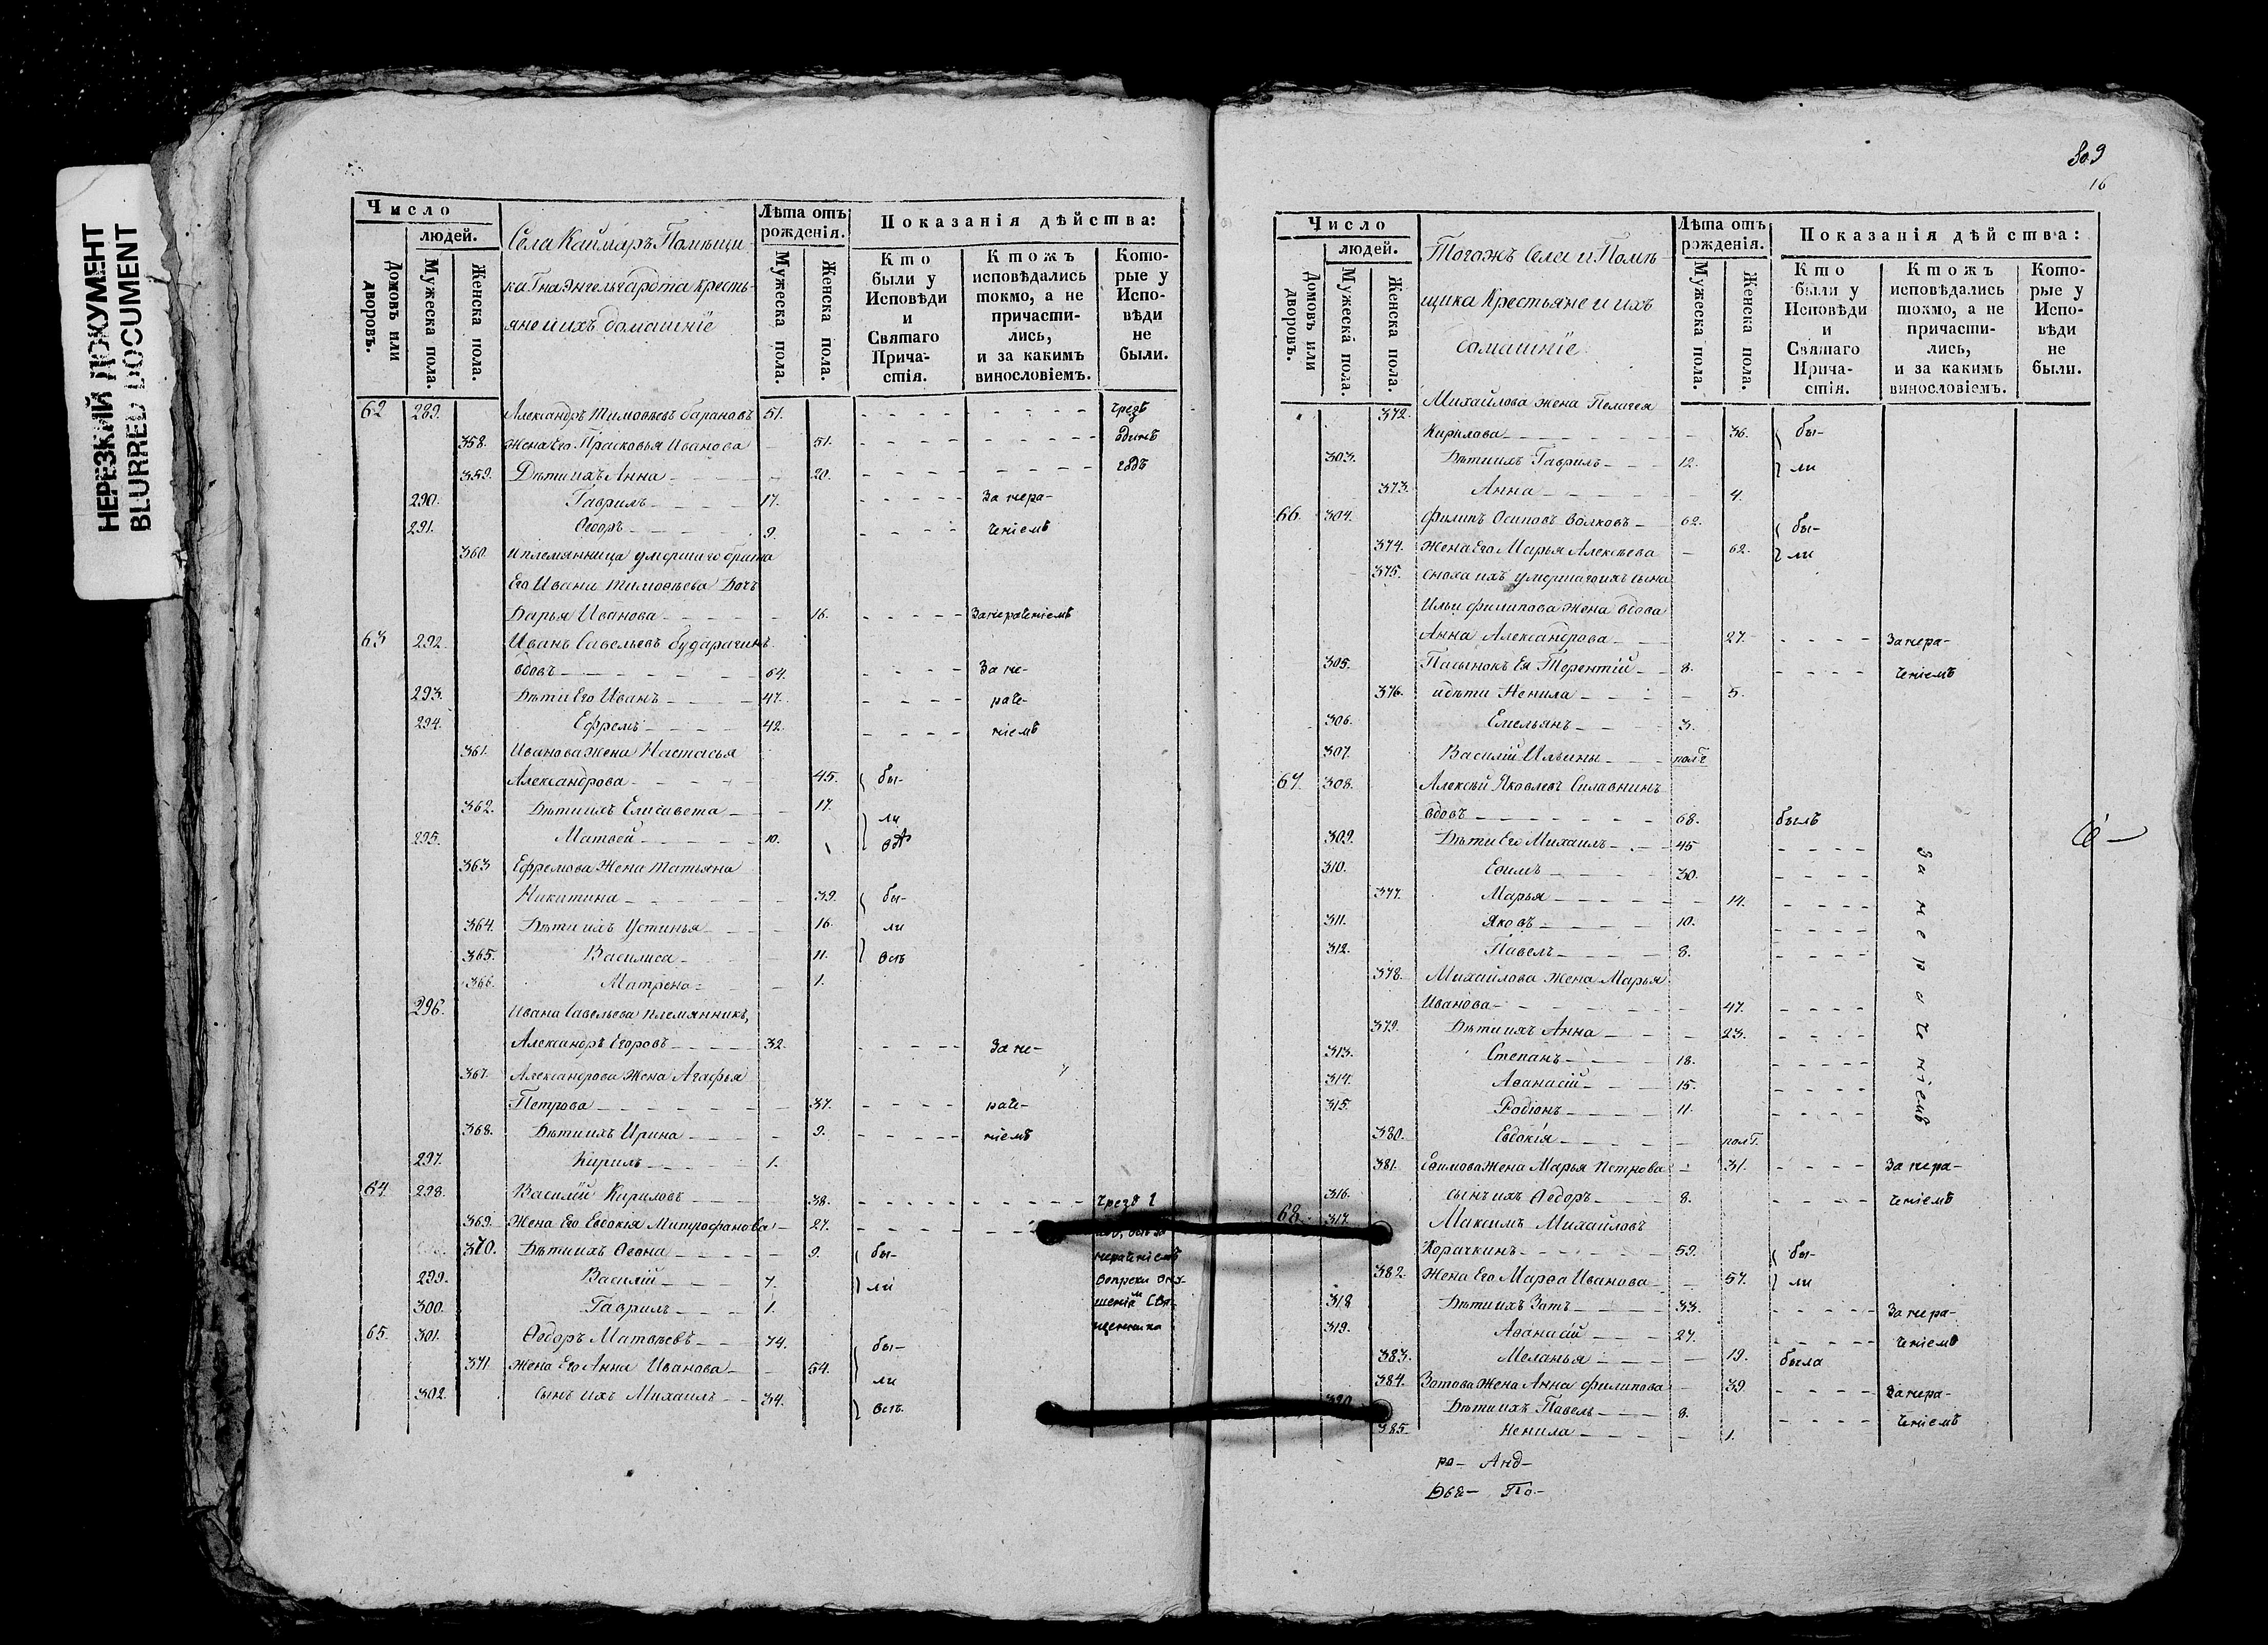 НЕРЕЗКИЙ ДОКУМЕНТ
BLURRED DOCUMENT
Число
людей.
Домовъ или дворовъ.
Мужеска пола.
Женска пола.
Села Каймаръ Помѣщи-
ка Гна Энгельгардта кресть-
яне и ихъ домашніе
Лѣта отъ рожденія.
Мужеска пола.
Женска пола.
Показанія дѣйства:
Кто были у Исповѣди и Святаго Прича-стія.
Ктожъ исповѣдались токмо, а не причасти-лись, и за какимъ винословіемъ.
Кото-рые у Испо-вѣди не были.
62 289. Александръ Тимоѳеевъ барановъ 51. чрезъ
358. жена Его Прасковья Иванова 51. одинъ
359. Дѣти ихъ Анна 20. годъ
290. Гаврилъ 17. За нера-
291. Ѳедоръ 9. ченіемъ
360. и племянница умершаго брата
Его Ивана Тимоѳеева дочь
Дарья Иванова 16. За нераченіемъ
63 292. Иванъ Савельевъ бударагинъ
вдовъ 64. За не-
293. Дѣти Его Иванъ 47. раче-
294. Ефремъ 42. ніемъ
361. Иванова жена Настасья
Александрова 45. бы-
362. Дѣти ихъ Елисавета 17. ли
295. Матвей 10.
363 Ефремова Жена Татьяна
Никитина 39. бы-
364. Дѣти ихъ Устинья 16. ли
365. Василиса 11. всѣ
366. Матрена 1.
296. Ивана Савельева племянникъ,
Александръ Егоровъ 32. За не-
367. Александрова Жена Агафья
Петрова 37. раче-
368. Дѣти ихъ Ирина 9. ніемъ
297. Кирилъ 1.
64 298. Василій Кириловъ 38. чрезъ 1
369. Жена Его Евдокія Митрофанова 27.
370. Дѣти ихъ Ѳеона 9. бы- нераченіемъ
299. Василій 7. ли вопреки вну-
300. Гаврилъ 1. шеніям Свя-
65. 301. Ѳедоръ Матвѣевъ 74. бы- щенника
371. жена Его Анна Иванова 54. ли
302. сынъ ихъ Михаилъ 34. всѣ.
309
16
Число
людей.
Домовъ или дворовъ.
Мужеска пола.
Женска пола.
Тогожъ Села и Помѣ-
щика Крестьяне и ихъ
домашніе
Лѣта отъ рожденія.
Мужеска пола.
Женска пола.
Показанія дѣйства:
Кто были у Исповѣди и Святаго Прича-стія.
Ктожъ исповѣдались токмо, а не причасти-лись, и за какимъ винословіемъ.
Кото-рые у Испо-вѣди не были.
372. Михайлова жена Пелагея
Кирилова 36. бы-
303. Дѣти ихъ Гаврилъ 12. ли
373. Анна 4.
66. 304. Филипъ Осиповъ Волковъ 62. бы-
374. Жена Его Марья Алексѣева 62. ли
375. сноха ихъ умершаго ихъ сына
Ильи филипова жена вдова
Анна Александрова 27. За нера-
305. Пасынокъ Ея Терентій 8. ченіемъ
376. и дѣти Ненила 5.
306. Емельянъ 3.
307. Василій Ильины полг.
67. 308. Алексѣй Яковлевъ Силавнинъ
вдовъ 68. былъ
309. Дѣти Его Михаилъ 45
310. Ефимъ 30.
377. Марья 14.
311. Яковъ 10.
312. Павелъ 8.
378. Михайлова жена Марья
Иванова 47.
379. Дѣти ихъ Анна 23.
313. Степанъ 18.
314. Аѳанасій 15.
315. Родіонъ 11.
За нераченіемъ
380. Евдокія полг.
381. Ефимова жена Марья Петрова 31. За нера-
316. сынъ ихъ Ѳедоръ 8. ченіемъ
68. 317. Максимъ Михайловъ
Корячкинъ 59. бы-
382. Жена Его Марѳа Иванова 57. ли
318 Дѣти ихъ Зотъ 33. За нера-
319. Аѳанасій 27. ченіемъ
383. Меланья 19. была
384. Зотова Жена Анна филипова 39. За нера-
320. Дѣти ихъ Павелъ 8. ченіемъ
385. Ненила 1.